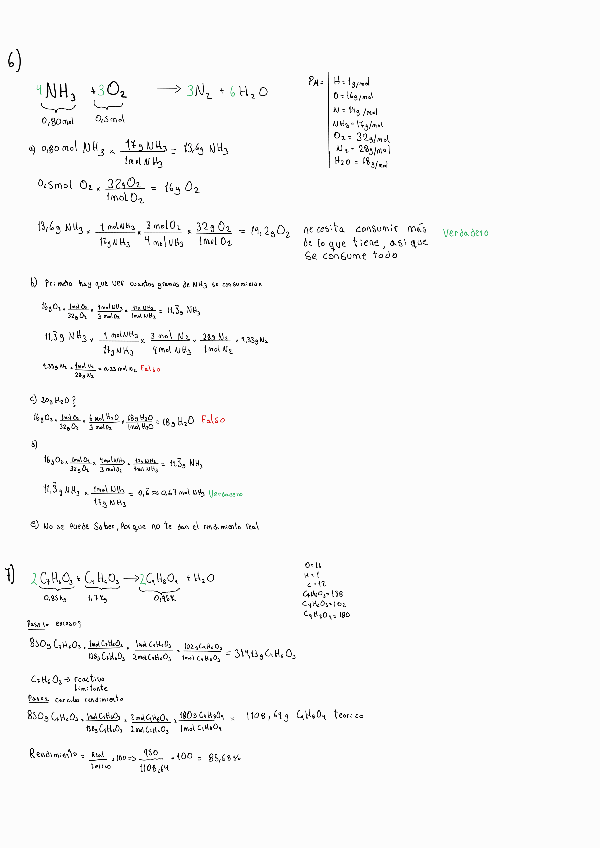 6)
4NH₃ + 3O₂ → 3N₂ + 6H₂O
0,80 mol 0,5 mol
PM=
H = 1g/mol
O = 16g/mol
N = 14g/mol
NH₃ = 17g/mol
O₂ = 32g/mol
N₂ = 28g/mol
H₂O = 18g/mol
a) 0,80 mol NH₃ × 17g NH₃/1mol NH₃ = 13,6g NH₃
0,5mol O₂ × 32g O₂/1mol O₂ = 16g O₂
13,6g NH₃ × 1 mol NH₃/17g NH₃ × 3 mol O₂/4 mol NH₃ × 32g O₂/1mol O₂ = 19,2g O₂
necesita consumir más
de lo que tiene, asi que
se consume todo
Verdadero
b) Primero hay que ver cuantos gramos de NH₃ se consumieron
16g O₂ × 1mol O₂/32g O₂ × 4mol NH₃/3 mol O₂ × 17g NH₃/1mol NH₃ = 11,3g NH₃
11,3g NH₃ × 1 mol NH₃/17g NH₃ × 3 mol N₂/4mol NH₃ × 28g N₂/1mol N₂ = 9,33g N₂
9,33g N₂ × 1mol N₂/28g N₂ = 0,33 mol O₂ Falso
c) 20g H₂O?
16g O₂ × 1mol O₂/32g O₂ × 6 mol H₂O/3 mol O₂ × 18g H₂O/1mol H₂O = 18g H₂O Falso
d)
16g O₂ × 1mol O₂/32g O₂ × 4mol NH₃/3 mol O₂ × 17g NH₃/1mol NH₃ = 11,3g NH₃
11,3g NH₃ × 1mol NH₃/17g NH₃ = 0,6 ≈ 0,67 mol NH₃ Verdadero
e) No se puede saber, porque no te dan el rendimiento real
7)
2C₇H₆O₃ + C₄H₆O₃ → 2C₉H₈O₄ + H₂O
0,85Kg 1,7Kg 0,95K
O=16
H=1
C=12
C₇H₆O₃=138
C₄H₆O₃=102
C₉H₈O₄=180
850g C₇H₆O₃ × 1mol C₇H₆O₃/138g C₇H₆O₃ × 1mol C₄H₆O₃/2mol C₇H₆O₃ × 102g C₄H₆O₃/1mol C₄H₆O₃ = 314,13g C₄H₆O₃
C₇H₆O₃ → reactivo
limitante
rendimiento
850g C₇H₆O₃ × 1mol C₇H₆O₃/138g C₇H₆O₃ × 2mol C₉H₈O₄/2mol C₇H₆O₃ × 180g C₉H₈O₄/1mol C₉H₈O₄ = 1108,69g C₉H₈O₄ teorico
Rendimiento = Real/Teorico × 100 => 950/1108,69 × 100 = 85,68%